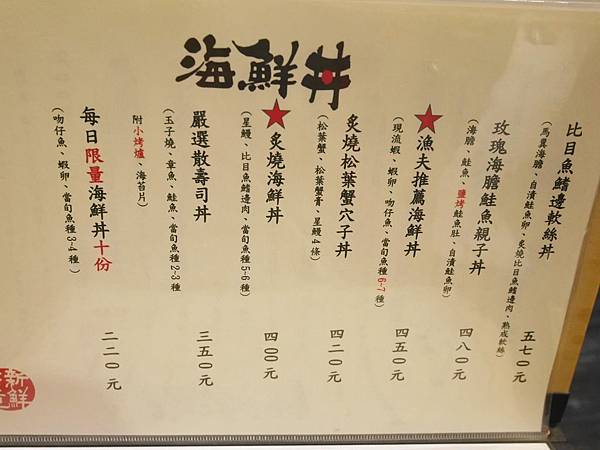 海鮮丼
比目魚鰭邊軟絲丼
（馬糞海膽、自漬鮭魚卵、炙燒比目魚鰭邊肉、熟成軟絲）
五七0元
玫瑰海膽鮭魚親子丼
（海膽、鮭魚、鹽烤鮭魚肚、自漬鮭魚卵）
四八0元
★漁夫推薦海鮮丼
（現流蝦、蝦卵、吻仔魚、當旬魚種6-7種）
四五0元
炙燒松葉蟹穴子丼
（松葉蟹、松葉蟹膏、星鰻4條）
四二0元
★炙燒海鮮丼
（星鰻、比目魚鰭邊肉、當旬魚種5-6種）
四00元
嚴選散壽司丼
（玉子燒、章魚、鮭魚、當旬魚種2-3種）
三五0元
附小烤爐、海苔片）
每日限量海鮮丼十份
（吻仔魚、蝦卵、當旬魚種3-4種）
二二0元
新鮮